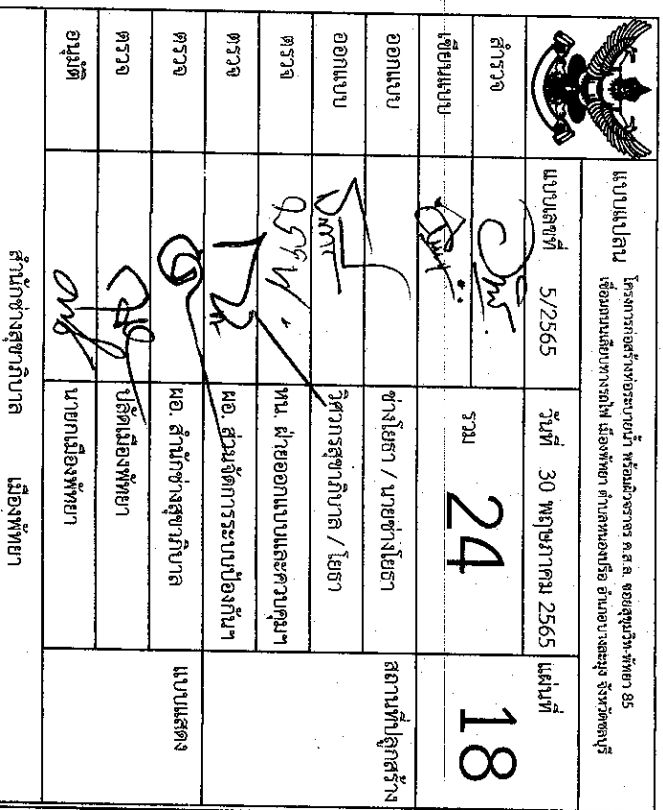 แบบแปลน โครงการก่อสร้างท่อระบายน้ำ พร้อมผิวจราจร ค.ส.ล. ซอยสุขุมวิท-พัทยา 85
เชื่อมถนนเลียบทางรถไฟ เมืองพัทยา ตำบลหนองปรือ อำเภอบางละมุง จังหวัดชลบุรี
แบบเลขที่ 5/2565 วันที่ 30 พฤษภาคม 2565 แผ่นที่
สำรวจ รวม 24 18
เขียนแบบ
ออกแบบ ช่างโยธา / นายช่างโยธา สถานที่ปลูกสร้าง
ออกแบบ วิศวกรสุขาภิบาล / โยธา
ตรวจ หน. ฝ่ายออกแบบและควบคุมฯ
ตรวจ ผอ. ส่วนจัดการระบบป้องกันฯ
ตรวจ ผอ. สำนักช่างสุขาภิบาล แบบแสดง
ตรวจ ปลัดเมืองพัทยา
อนุมัติ นายกเมืองพัทยา
สำนักช่างสุขาภิบาล เมืองพัทยา